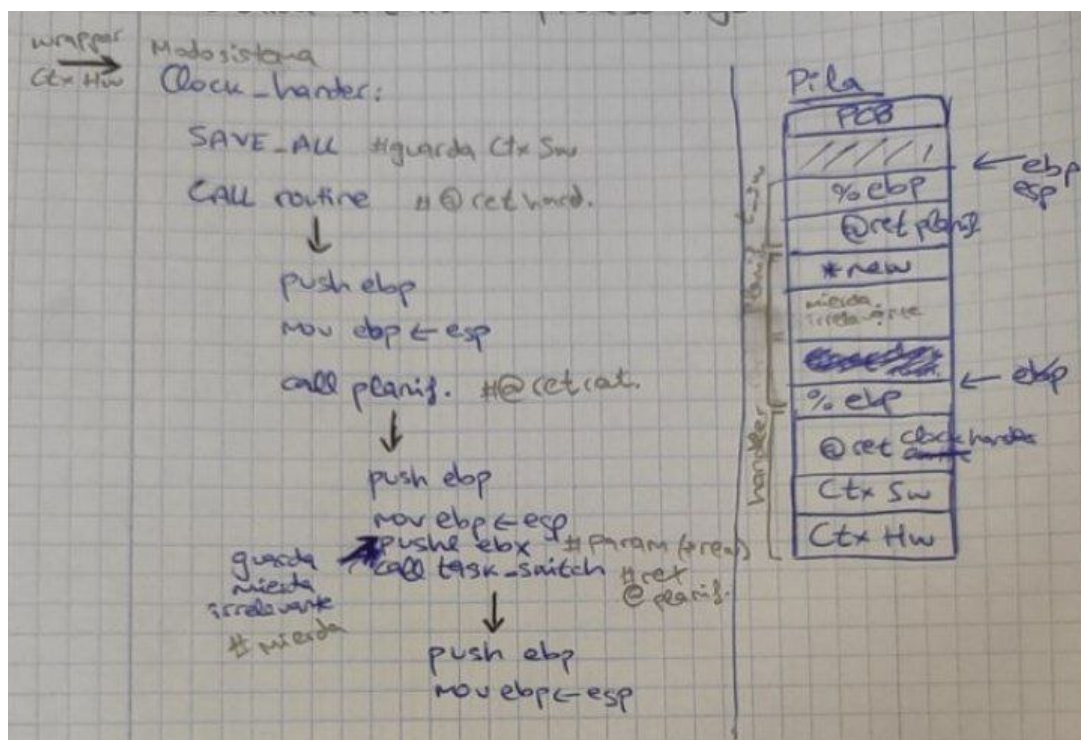 wrapper
Ctx Hw
Modo sistema
Clock_hander:
SAVE_ALL #guarda Ctx Sw
CALL routine # @ret hand.
push ebp
mov ebp ← esp
call planif. #@ret rut.
push ebp
mov ebp ← esp
push ebx #param (*new)
call task_switch #ret
@planif.
guarda
mierda
irrelevante
# mierda
push ebp
mov ebp ← esp
Pila
PCB
← ebp
esp
% ebp
@ret planif
*new
mierda
irrelevante
← ebp
% ebp
@ret clock handler
Ctx Sw
Ctx Hw
planif
handler